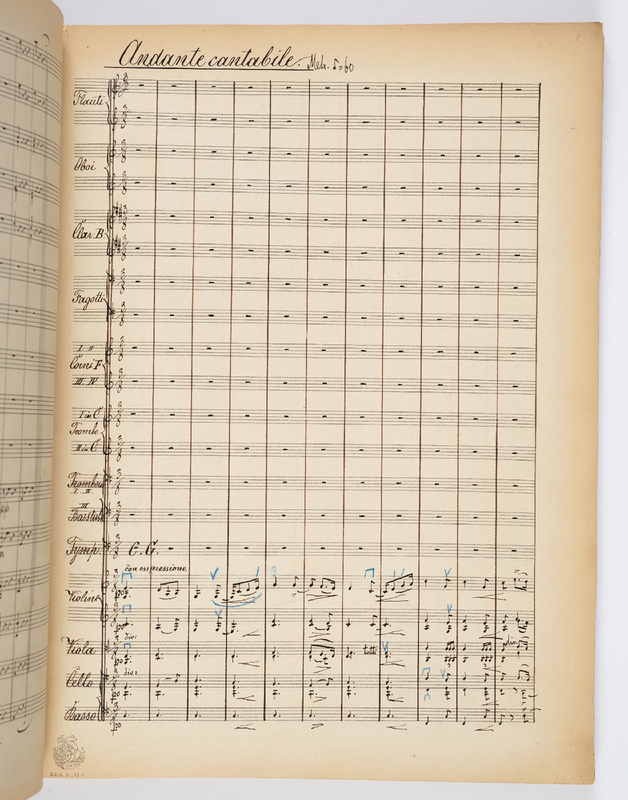 Andante cantabile. Metr. ♪=60
Flauti
Oboi
Clar. B
Fagotti
I. II
Corni F
III. IV
I in C
Trombe
II in C
Tromboni
I II
III
Timp. C. G.
Con espressione
Violini
div:
Viola
tutti
div:
div:
Cello
Basso